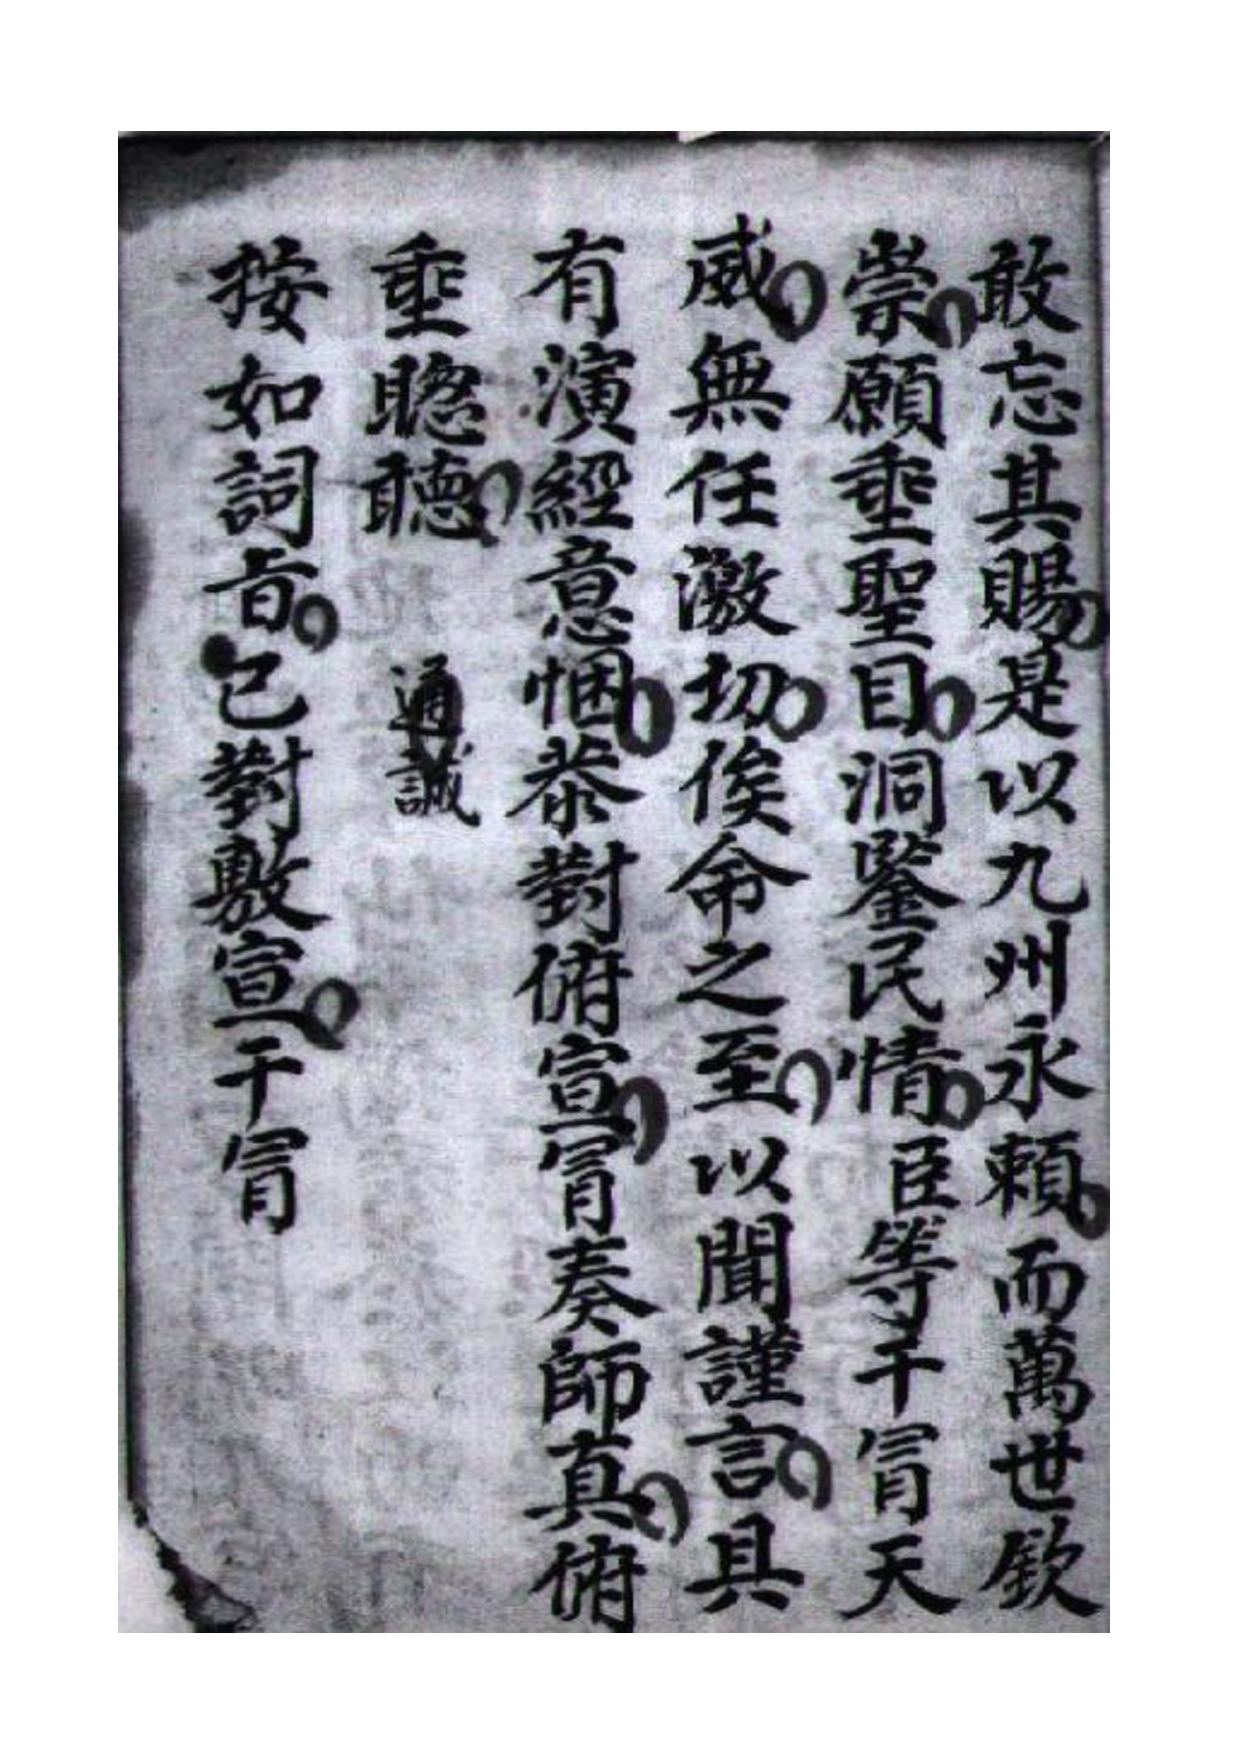 敢忘其賜是以九州永頼而萬世欽
崇願垂聖目洞鑒民情臣等干冐天
威無任激切俟命之至以聞謹言具
有演經意悃恭對俯宣冐奏師真俯
垂聰聽 通誠
按如詞旨已對敷宣干冐